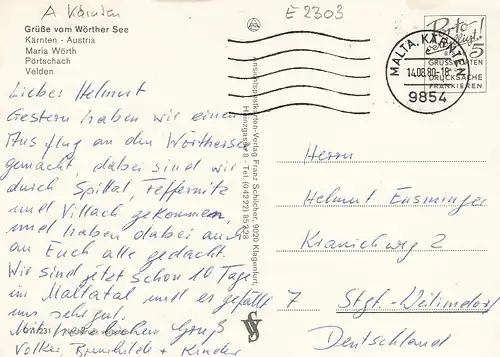 A Kärnten
E 2303
Grüße vom Wörther See
Kärnten · Austria
Maria Wörth
Pörtschach
Velden
Porto
5
GRUSSKARTEN
DRUCKSACHE
FRANKIEREN
MALTA, KÄRNTEN
14.08.80-18
9854
Lieber Helmut
Gestern haben wir einen
Ausflug an den Wörthersee
gemacht, dabei sind wir
durch Spittal, Feffernitz
und Villach gekommen,
und haben dabei auch
an Euch alle gedacht.
Wir sind jetzt schon 10 Tage
im Maltatal und es gefällt
uns sehr gut.
Mit herzlichem Gruß
Volker, Brunhilde + Kinder
Ansichtspostkarten-Verlag Franz Schilcher, 9020 Klagenfurt,
Heinzgasse 8 - Tel. (04222) 85 2 28
Herrn
Helmut Ensminger
Kranichweg 2
7 Stgt.-Weilimdorf
Deutschland